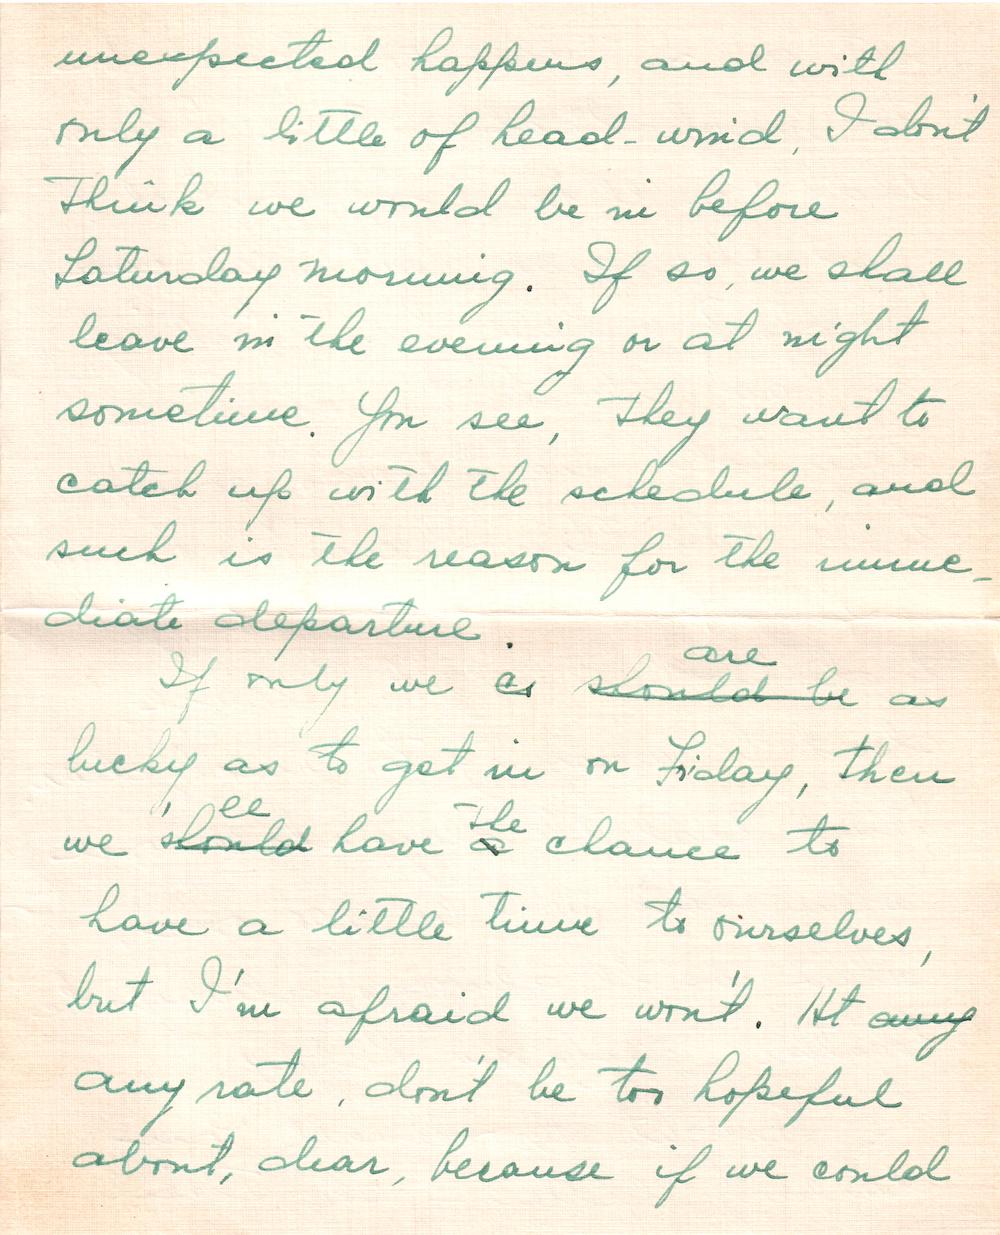 unexpected happens, and with
only a little of head-wind, I don't
think we would be in before
Saturday morning. If so, we shall
leave in the evening or at night
sometime. You see, they want to
catch up with the schedule, and
such is the reason for the imme-
diate departure.
are
If only we should be as
lucky as to get in on Friday, then
'ee the
we should have a chance to
have a little time to ourselves,
but I'm afraid we won't. At any
any rate, don't be too hopeful
about, dear, because if we could